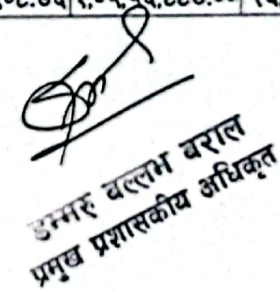 डम्मरु वल्लभ बराल
प्रमुख प्रशासकीय अधिकृत